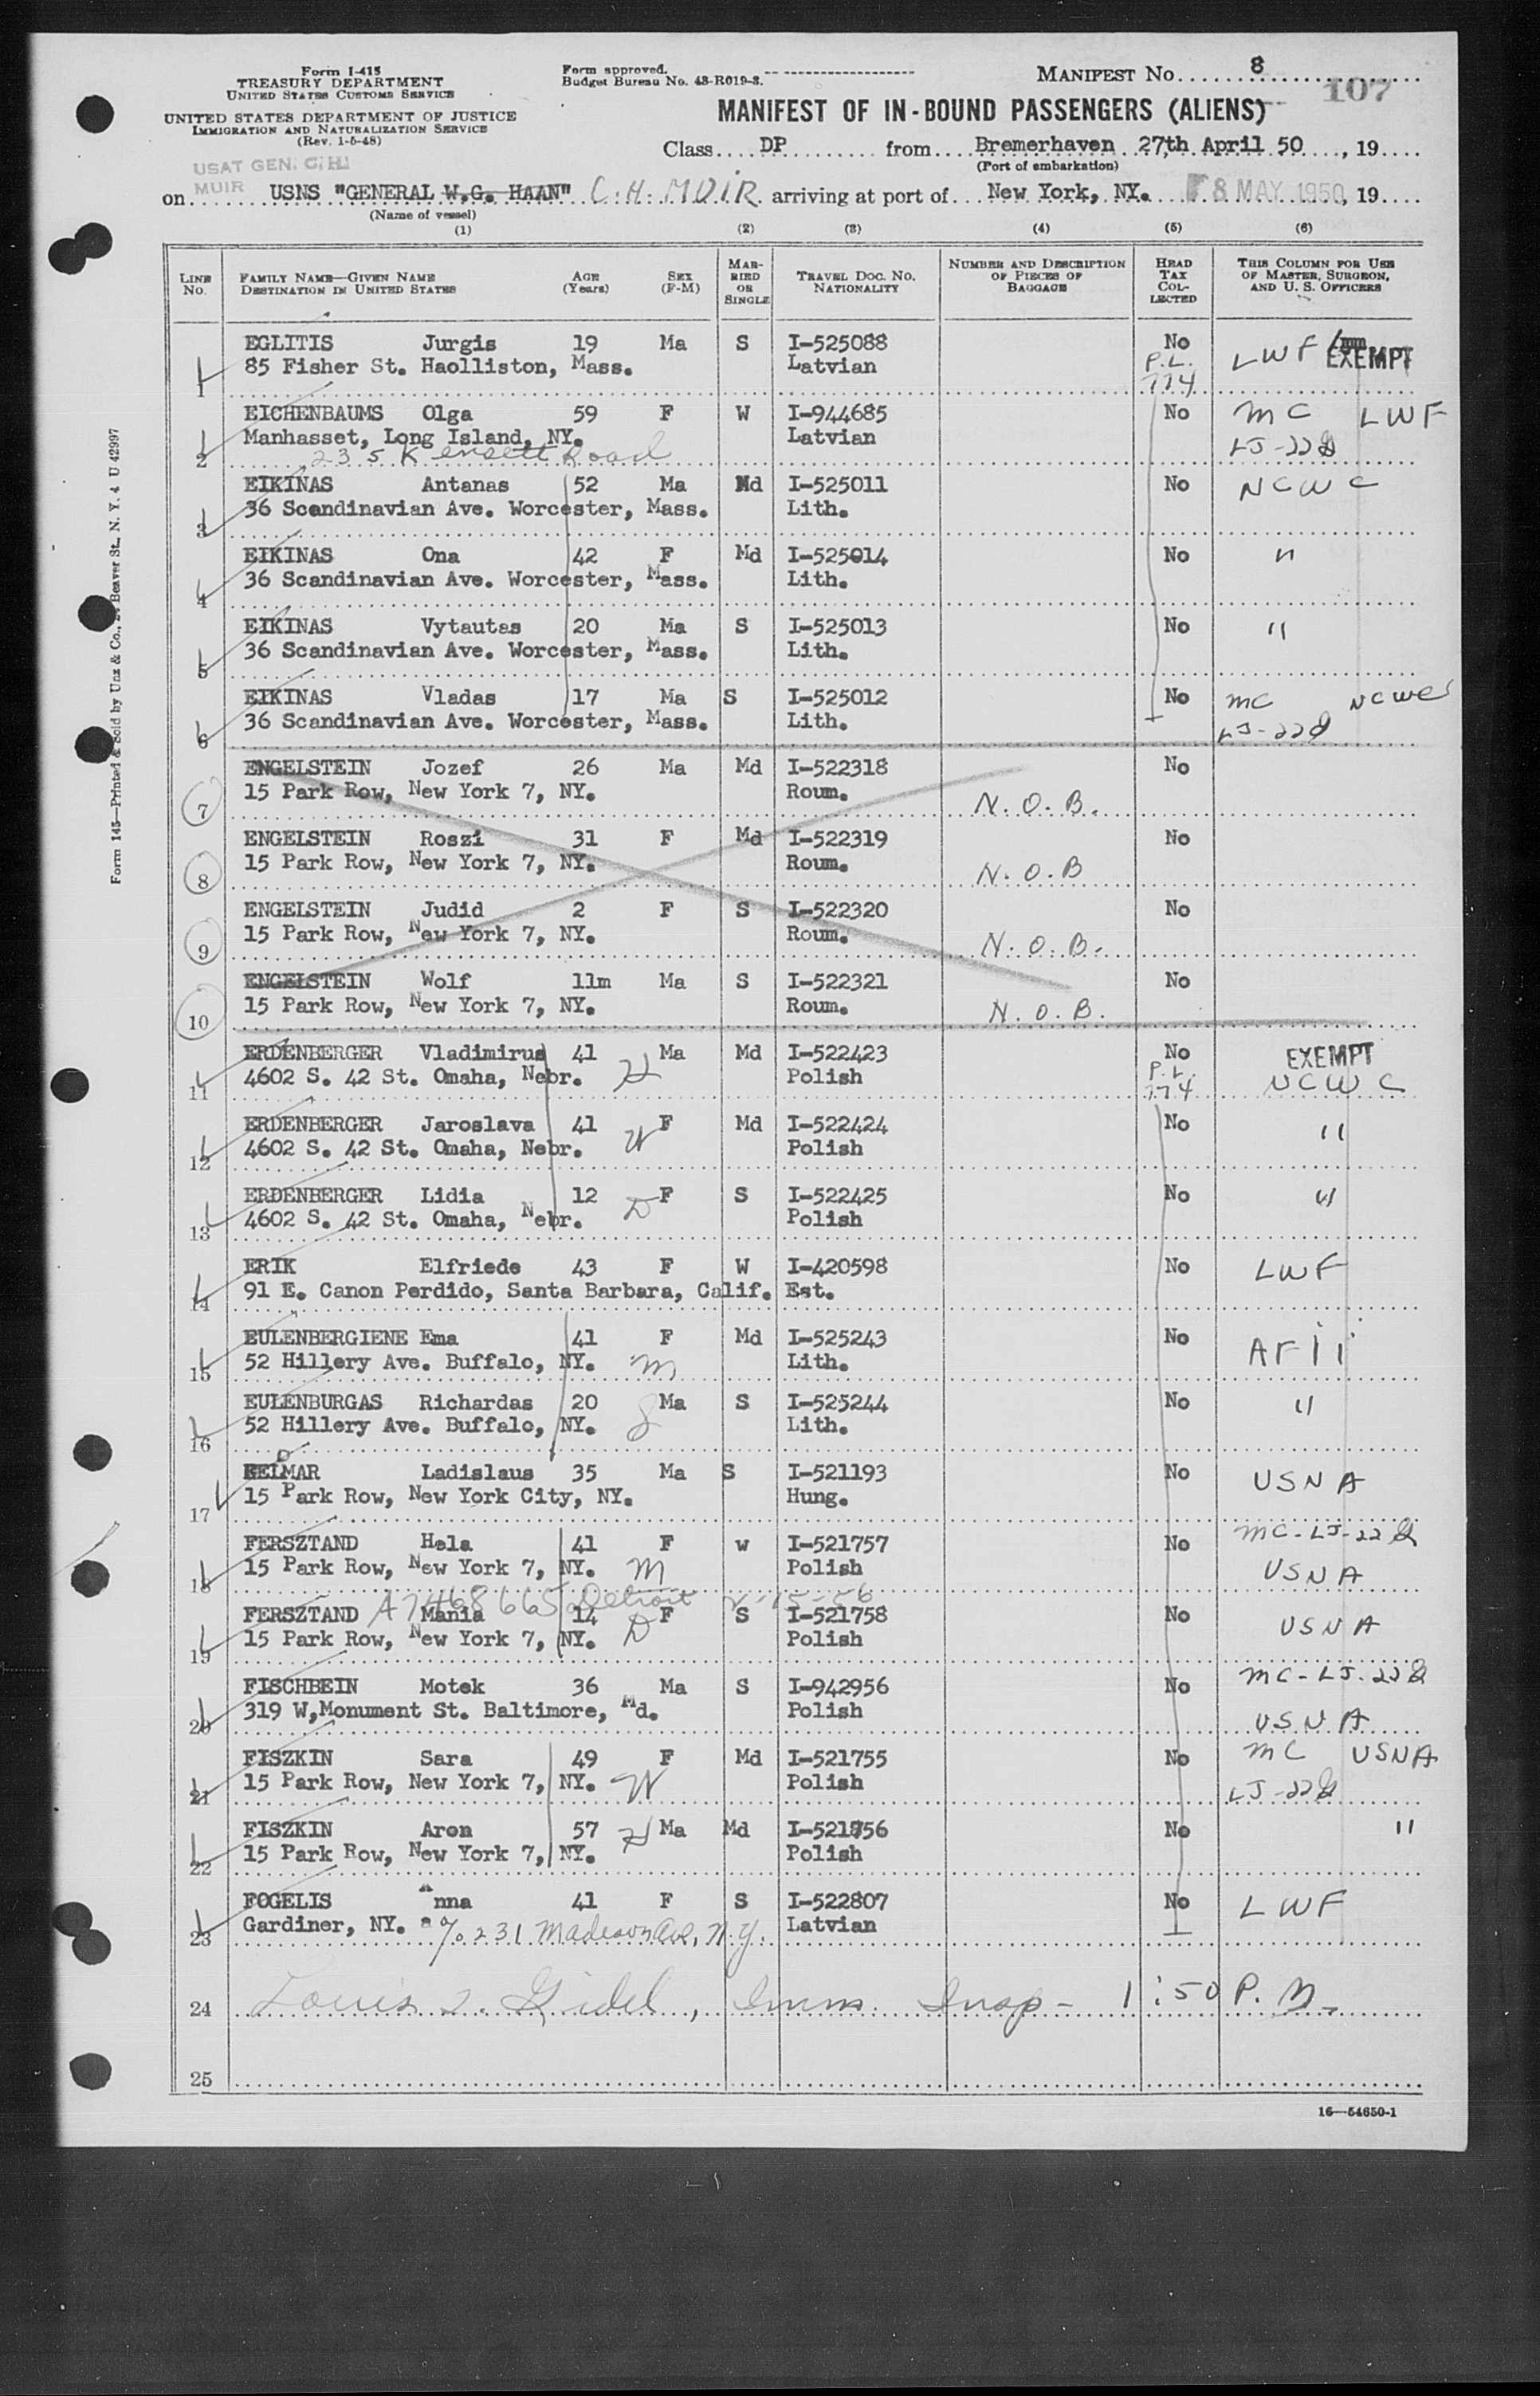 Form I-415
TREASURY DEPARTMENT
UNITED STATES CUSTOMS SERVICE
UNITED STATES DEPARTMENT OF JUSTICE
IMMIGRATION AND NATURALIZATION SERVICE
(Rev. 1-5-48)
Form approved.
Budget Bureau No. 43-R019-3.
MANIFEST No. 8
107
MANIFEST OF IN-BOUND PASSENGERS (ALIENS)
Class DP from Bremerhaven 27,th April 50, 19
(Port of embarkation)
USAT GEN. C. H.
MUIR
on USNS "GENERAL W.G. HAAN" C. H. MUIR arriving at port of New York, NY. 8 MAY 1950, 19
(Name of vessel)
(1) (2) (3) (4) (5) (6)
LINE No. FAMILY NAME—GIVEN NAME DESTINATION IN UNITED STATES AGE (Years) SEX (F-M) MARRIED OR SINGLE TRAVEL DOC. NO. NATIONALITY NUMBER AND DESCRIPTION OF PIECES OF BAGGAGE HEAD TAX COLLECTED THIS COLUMN FOR USE OF MASTER, SURGEON, AND U. S. OFFICERS
EGLITIS Jurgis 19 Ma S I-525088 No LWF EXEMPT
1 85 Fisher St. Haolliston, Mass. Latvian P.L. 774
EICHENBAUMS Olga 59 F W I-944685 No MC LWF
Manhasset, Long Island, NY. Latvian LJ-22d
2 235 Kensett Road
EIKINAS Antanas 52 Ma Md I-525011 No NCWC
3 36 Scandinavian Ave. Worcester, Mass. Lith.
EIKINAS Ona 42 F Md I-525014 No "
4 36 Scandinavian Ave. Worcester, Mass. Lith.
EIKINAS Vytautas 20 Ma S I-525013 No "
5 36 Scandinavian Ave. Worcester, Mass. Lith.
EIKINAS Vladas 17 Ma S I-525012 No MC NCWC
6 36 Scandinavian Ave. Worcester, Mass. Lith. LJ-22d
ENGELSTEIN Jozef 26 Ma Md I-522318 No
7 15 Park Row, New York 7, NY. Roum. N.O.B.
ENGELSTEIN Roszi 31 F Md I-522319 No
8 15 Park Row, New York 7, NY. Roum. N.O.B
ENGELSTEIN Judid 2 F S I-522320 No
9 15 Park Row, New York 7, NY. Roum. N.O.B.
ENGELSTEIN Wolf 11m Ma S I-522321 No
10 15 Park Row, New York 7, NY. Roum. N.O.B.
ERDENBERGER Vladimirus 41 Ma Md I-522423 No EXEMPT
11 4602 S. 42 St. Omaha, Nebr. H Polish P.L. 774 NCWC
ERDENBERGER Jaroslava 41 F Md I-522424 No "
12 4602 S. 42 St. Omaha, Nebr. W Polish
ERDENBERGER Lidia 12 F S I-522425 No "
13 4602 S. 42 St. Omaha, Nebr. D Polish
ERIK Elfriede 43 F W I-420598 No LWF
14 91 E. Canon Perdido, Santa Barbara, Calif. Est.
EULENBERGIENE Ema 41 F Md I-525243 No
15 52 Hillery Ave. Buffalo, NY. m Lith.
EULENBURGAS Richardas 20 Ma S I-525244 No "
16 52 Hillery Ave. Buffalo, NY. S Lith.
Ladislaus 35 Ma S I-521193 No USNA
17 15 Park Row, New York City, NY. Hung.
FERSZTAND Hela 41 F w I-521757 No MC-LJ-22d
18 15 Park Row, New York 7, NY. m Polish USNA
A7468665 Detroit 2-15-56
FERSZTAND Mania 14 F S I-521758 No USNA
19 15 Park Row, New York 7, NY. D Polish
FISCHBEIN Motek 36 Ma S I-942956 No MC-LJ-22d
20 319 W,Monument St. Baltimore, Md. Polish USNA
FISZKIN Sara 49 F Md I-521755 No MC USNA
21 15 Park Row, New York 7, NY. W Polish LJ-22d
FISZKIN Aron 57 H Ma Md I-521756 No "
22 15 Park Row, New York 7, NY. Polish
FOGELIS Anna 41 F S I-522807 No LWF
23 Gardiner, NY. c/o 231 Madison Ave, N.Y. Latvian
24 Louis Gidel, Imm. Insp- 1:50 P.M.
25
16—54650-1
Form 145—Printed & Sold by Unz & Co., Beaver St., N. Y. 4 U 42997